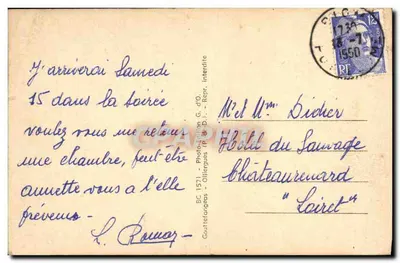 J'arriverai Samedi
15 dans la soirée
voulez vous me retenir
une chambre, peut être
annette vous a t'elle
prévenus -
BC 1571 - Photo G. d'O.
Ollierges (P.-de-D.) - Repr. Interdite
Mr et Mme Didier
Hotel du Sauvage
Châteaurenard
"Loiret"
1950
RF
12F